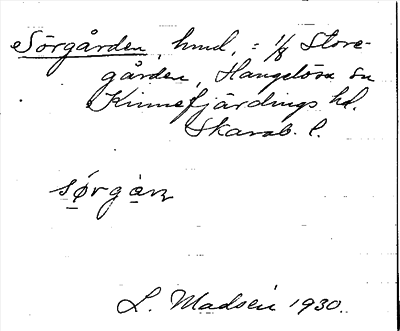 Sörgården, hmd, = 1/8 Store-
gården, Hangelösa sn
Kinnefjärdings hd.
Skarab. l.
sǿrgàn
L. Madsén 1930.